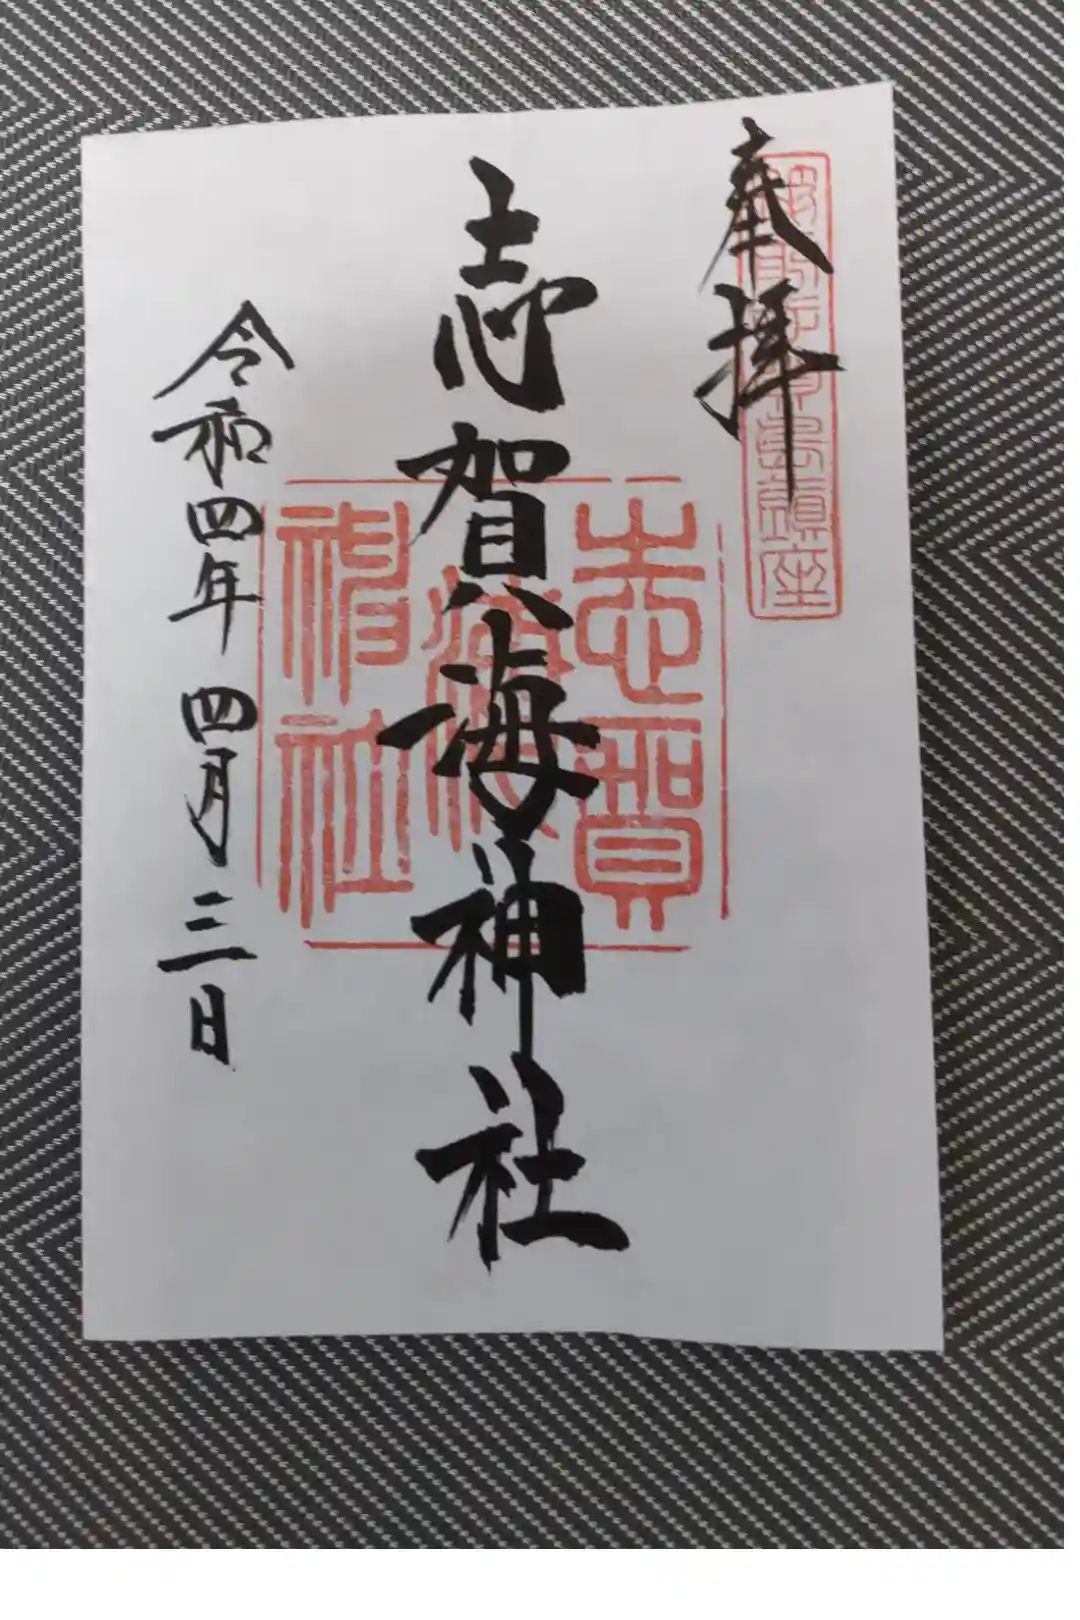 奉拝
志賀海神社
志賀
海
神社
令和四年 四月三日